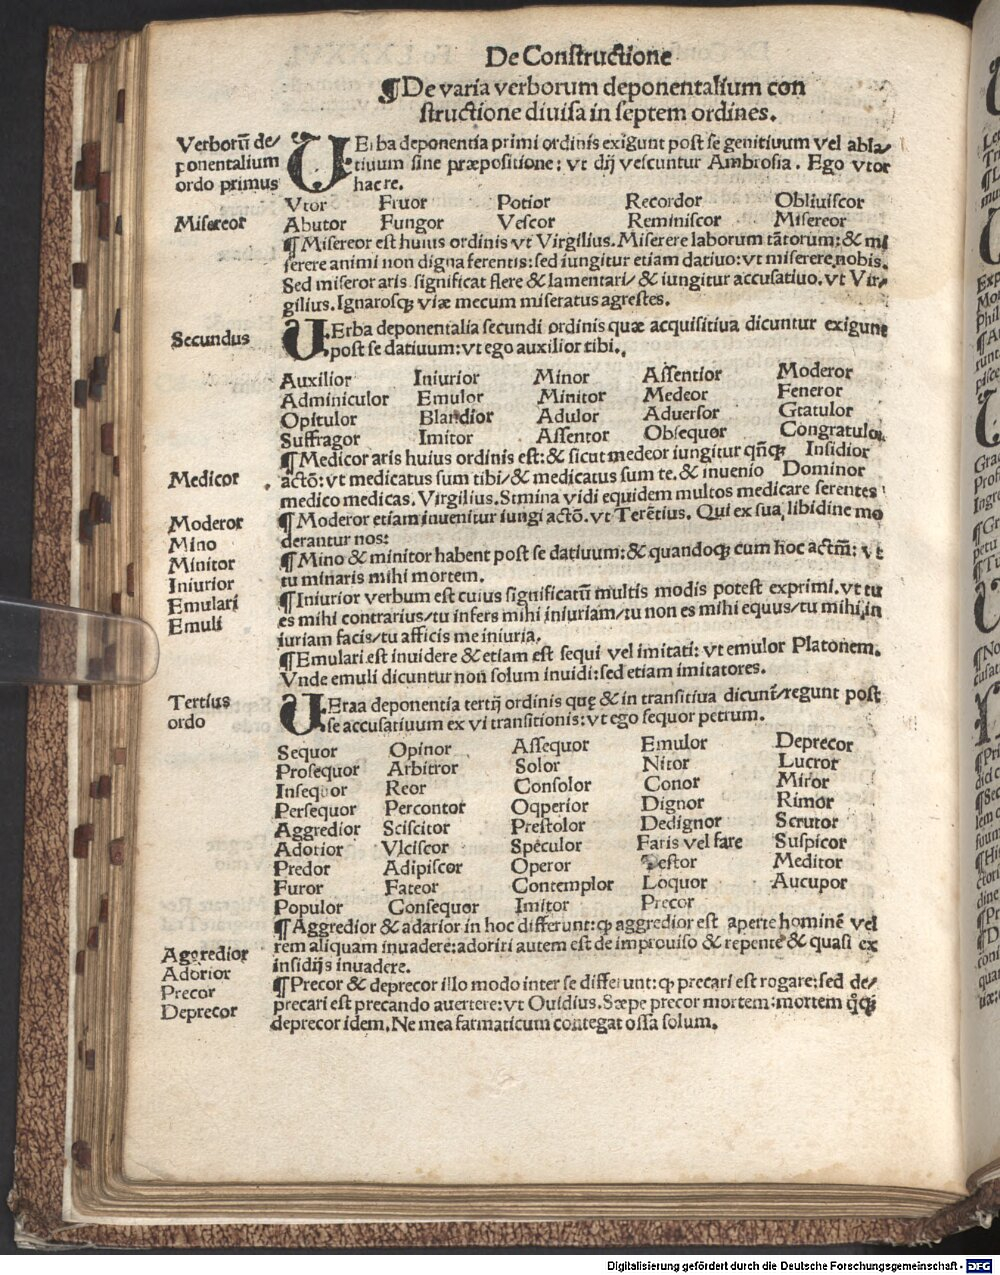 De Constructione
¶De varia verborum deponentalium con
structione diuisa in septem ordines.
Verborū de/
ponentalium
ordo primus
VErba deponentia primi ordinis exigunt post se genitiuum vel abla/
tiuum sine præpositione: vt dij vescuntur Ambrosia. Ego vtor
hac re.
Vtor Fruor Potior Recordor Obliuiscor
Misereor
Abutor Fungor Vescor Reminiscor Misereor
¶Misereor est huius ordinis vt Virgilius. Miserere laborum tātorum: & mi
serere animi non digna ferentis: sed iungitur etiam datiuo: vt miserere nobis.
Sed miseror aris significat flere & lamentari/ & iungitur accusatiuo. vt Vir/
gilius. Ignarosq; viæ mecum miseratus agrestes.
Secundus
VErba deponentalia secundi ordinis quæ acquisitiua dicuntur exigunt
post se datiuum: vt ego auxilior tibi.
Auxilior Iniurior Minor Assentior Moderor
Adminiculor Emulor Minitor Medeor Feneror
Opitulor Blandior Adulor Aduersor Gratulor
Suffragor Imitor Assentor Obsequor Congratulor
¶Medicor aris huius ordinis est: & sicut medeor iungitur qñq; Insidior
Medicor
actō: vt medicatus sum tibi/ & medicatus sum te. & inuenio Dominor
medico medicas. Virgilius. Semina vidi equidem multos medicare serentes
Moderor
¶Moderor etiam inuenitur iungi actō. vt Terētius. Qui ex sua libidine mo
derantur nos:
Mino
Minitor
¶Mino & minitor habent post se datiuum: & quandoq; cum hoc actm̄: vt
tu minaris mihi mortem.
Iniurior
¶Iniurior verbum est cuius significatū multis modis potest exprimi. vt tu
es mihi contrarius/ tu infers mihi iniuriam/ tu non es mihi equus/ tu mihi in
iuriam facis/ tu afficis me iniuria.
Emulari
Emuli
¶Emulari est inuidere & etiam est sequi vel imitati: vt emulor Platonem.
Vnde emuli dicuntur non solum inuidi: sed etiam imitatores.
Tertius
ordo
VEraa deponentia tertij ordinis quę & in transitiua dicunt̄/ regunt post
se accusatiuum ex vi transitionis: vt ego sequor petrum.
Sequor Opinor Assequor Emulor Deprecor
Prosequor Arbitror Solor Nitor Lucror
Insequor Reor Consolor Conor Miror
Persequor Percontor Oqperior Dignor Rimor
Aggredior Sciscitor Prestolor Dedignor Scrutor
Adorior Vlciscor Speculor Faris vel fare Suspicor
Predor Adipiscor Operor Testor Meditor
Furor Fateor Contemplor Loquor Aucupor
Populor Consequor Imitor Precor
Aggredior
Adorior
¶Aggredior & adarior in hoc differunt: q̨ aggredior est aperte hominē vel
rem aliquam inuadere: adoriri autem est de improuiso & repente & quasi ex
insidijs inuadere.
Precor
Deprecor
¶Precor & deprecor illo modo inter se differunt: q̨ precari est rogare: sed de/
precari est precando auertere: vt Ouidius. Sæpe precor mortem: mortem q̄q;
deprecor idem. Ne mea sarmaticum contegat ossa solum.
Digitalisierung gefördert durch die Deutsche Forschungsgemeinschaft - DFG